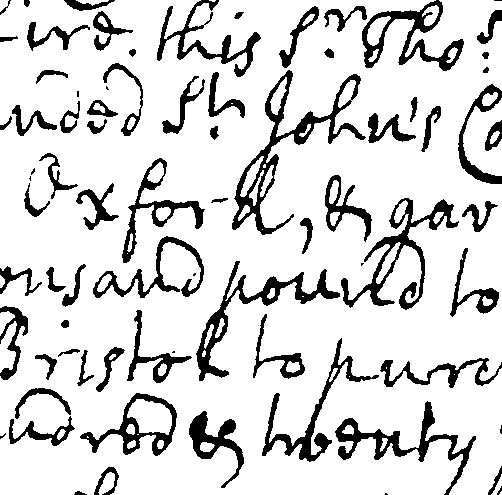 ire. this Sr. Thos:
unded St. John's Co
Oxford, & gav
ousand pound to
Bristol to purc
undred & twenty